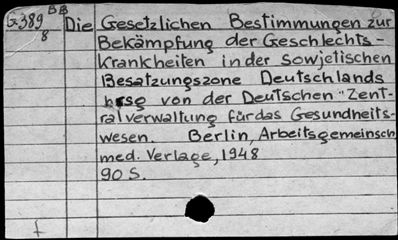 G 389 BB
8
Die Gesetzlichen Bestimmungen zur
Bekämpfung der Geschlechts-
krankheiten in der sowjetischen
Besatzungszone Deutschlands
hrsg von der Deutschen "Zent-
ralverwaltung für das Gesundheits-
wesen. Berlin, Arbeitsgemeinsch
med. Verlage, 1948
90 S.